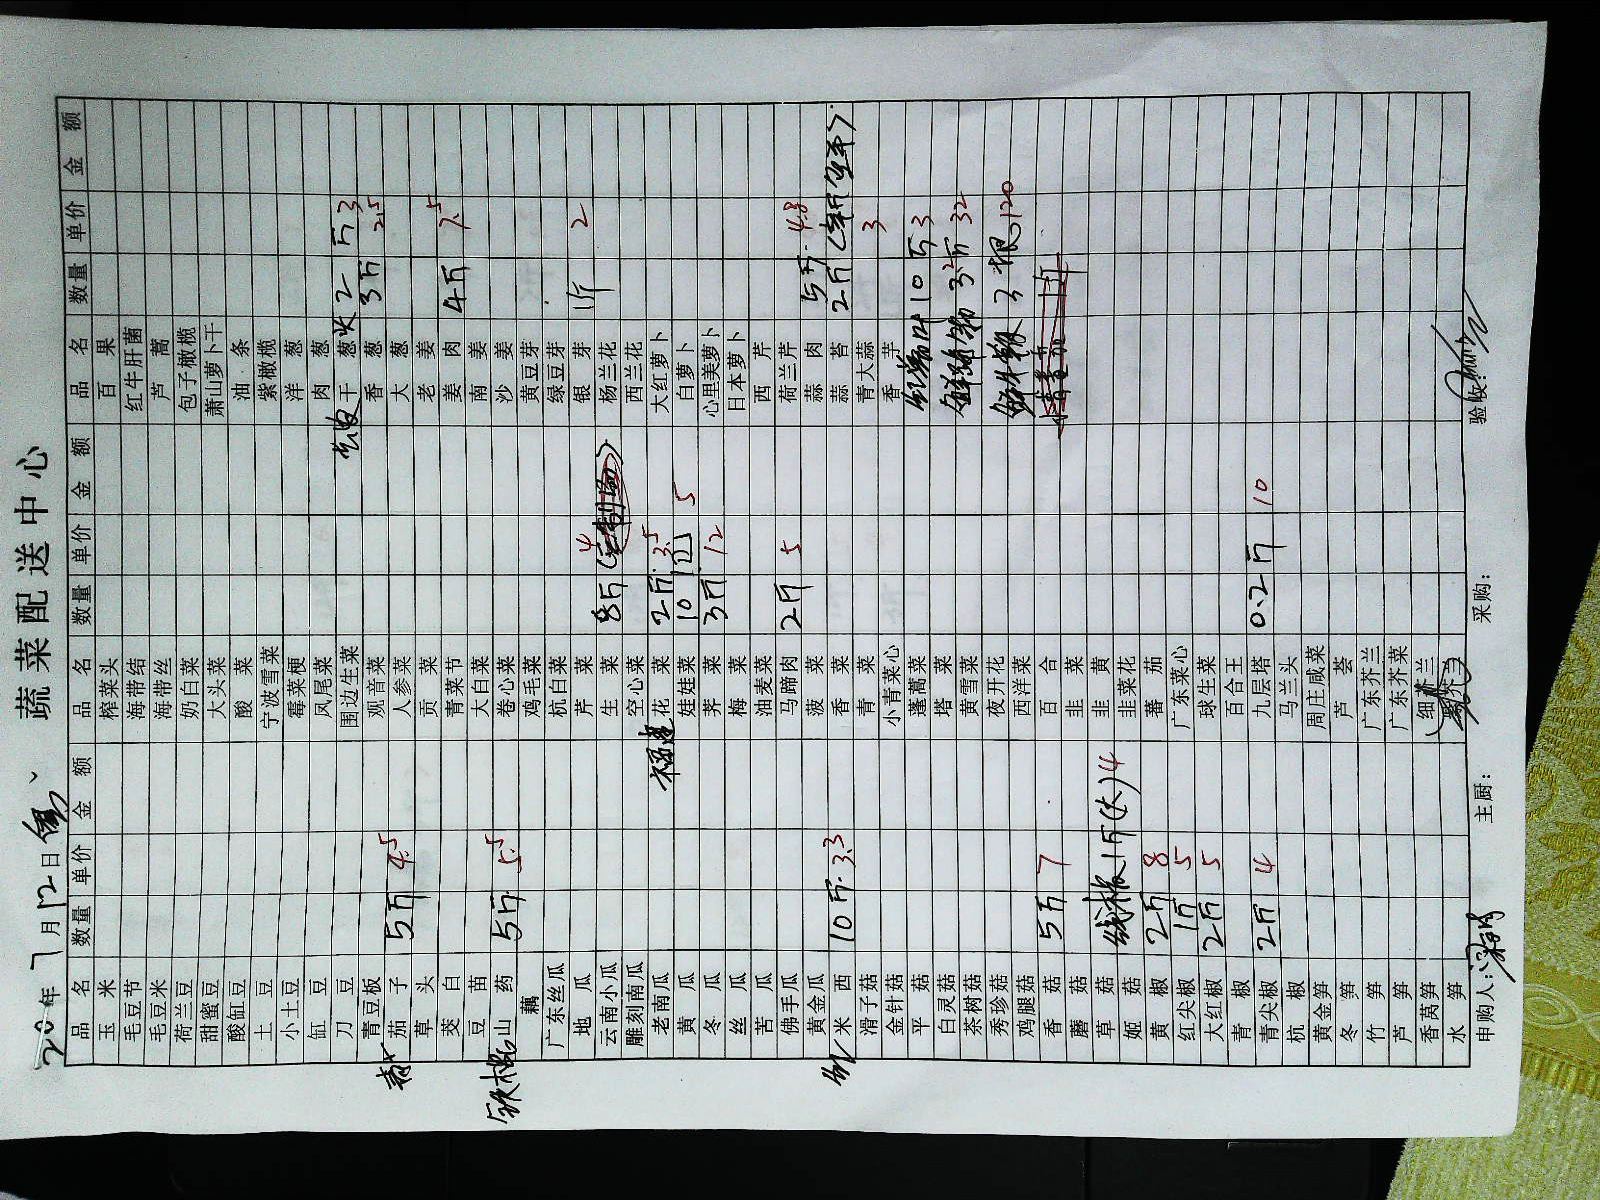 蔬菜配送中心
20 年 7 月 12 日
品名 数量 单价 金额 品名 数量 单价 金额 品名 数量 单价 金额
玉米 榨菜头 百果
毛豆节 海带结 红牛肝菌
毛豆米 海带丝 芦蒿
荷兰豆 奶白菜 包子橄榄
甜蜜豆 大头菜 萧山萝卜干
酸缸豆 酸菜 油条
土豆 宁波雪菜 紫橄榄
小土豆 霉菜梗 洋葱
缸豆 凤尾菜 肉葱
刀豆 围边生菜 干葱 2斤 3
青豆板 观音菜 香葱 3斤 2.5
青茄子 5斤 4.5 人参菜 大葱
草头 贡菜 老姜
茭白 青菜节 姜肉 4斤 7.5
豆苗 大白菜 南姜
铁棍山药 5斤 5.5 卷心菜 沙姜
藕 鸡毛菜 黄豆芽
广东丝瓜 杭白菜 绿豆芽
地瓜 芹菜 银芽 1斤 2
云南小瓜 生菜 8斤 4 杨兰花
雕刻南瓜 空心菜 西兰花
老南瓜 福建花菜 2斤 3.5 大红萝卜
黄瓜 娃娃菜 10包 5 白萝卜
冬瓜 荠菜 3斤 12 心里美萝卜
丝瓜 梅菜 日本萝卜
苦瓜 油麦菜 西芹
佛手瓜 马蹄肉 2斤 5 荷兰芹
黄金瓜 菠菜 蒜肉 5斤 4.8
红米西 10斤 3.3 香菜 蒜苔 2斤
滑子菇 青菜 青大蒜 3
金针菇 小青菜心 香芋
平菇 蓬蒿菜 红薯叶 10斤 3
白灵菇 塔菜 32
茶树菇 黄雪菜
秀珍菇 夜开花 3根 120
鸡腿菇 西洋菜
香菇 5斤 7 百合
蘑菇 韭菜
草菇 线椒 1斤(大) 4 韭黄
姬菇 韭菜花
黄椒 2斤 8 蕃茄
红尖椒 1斤 5 广东菜心
大红椒 2斤 5 球生菜
青椒 百合王
青尖椒 2斤 4 九层塔 0.2斤 10
杭椒 马兰头
黄金笋 周庄咸菜
冬笋 芦荟
竹笋 广东芥兰
芦笋 广东芥菜
香莴笋 细芥兰
水笋
申购人: 主厨: 采购: 验收: